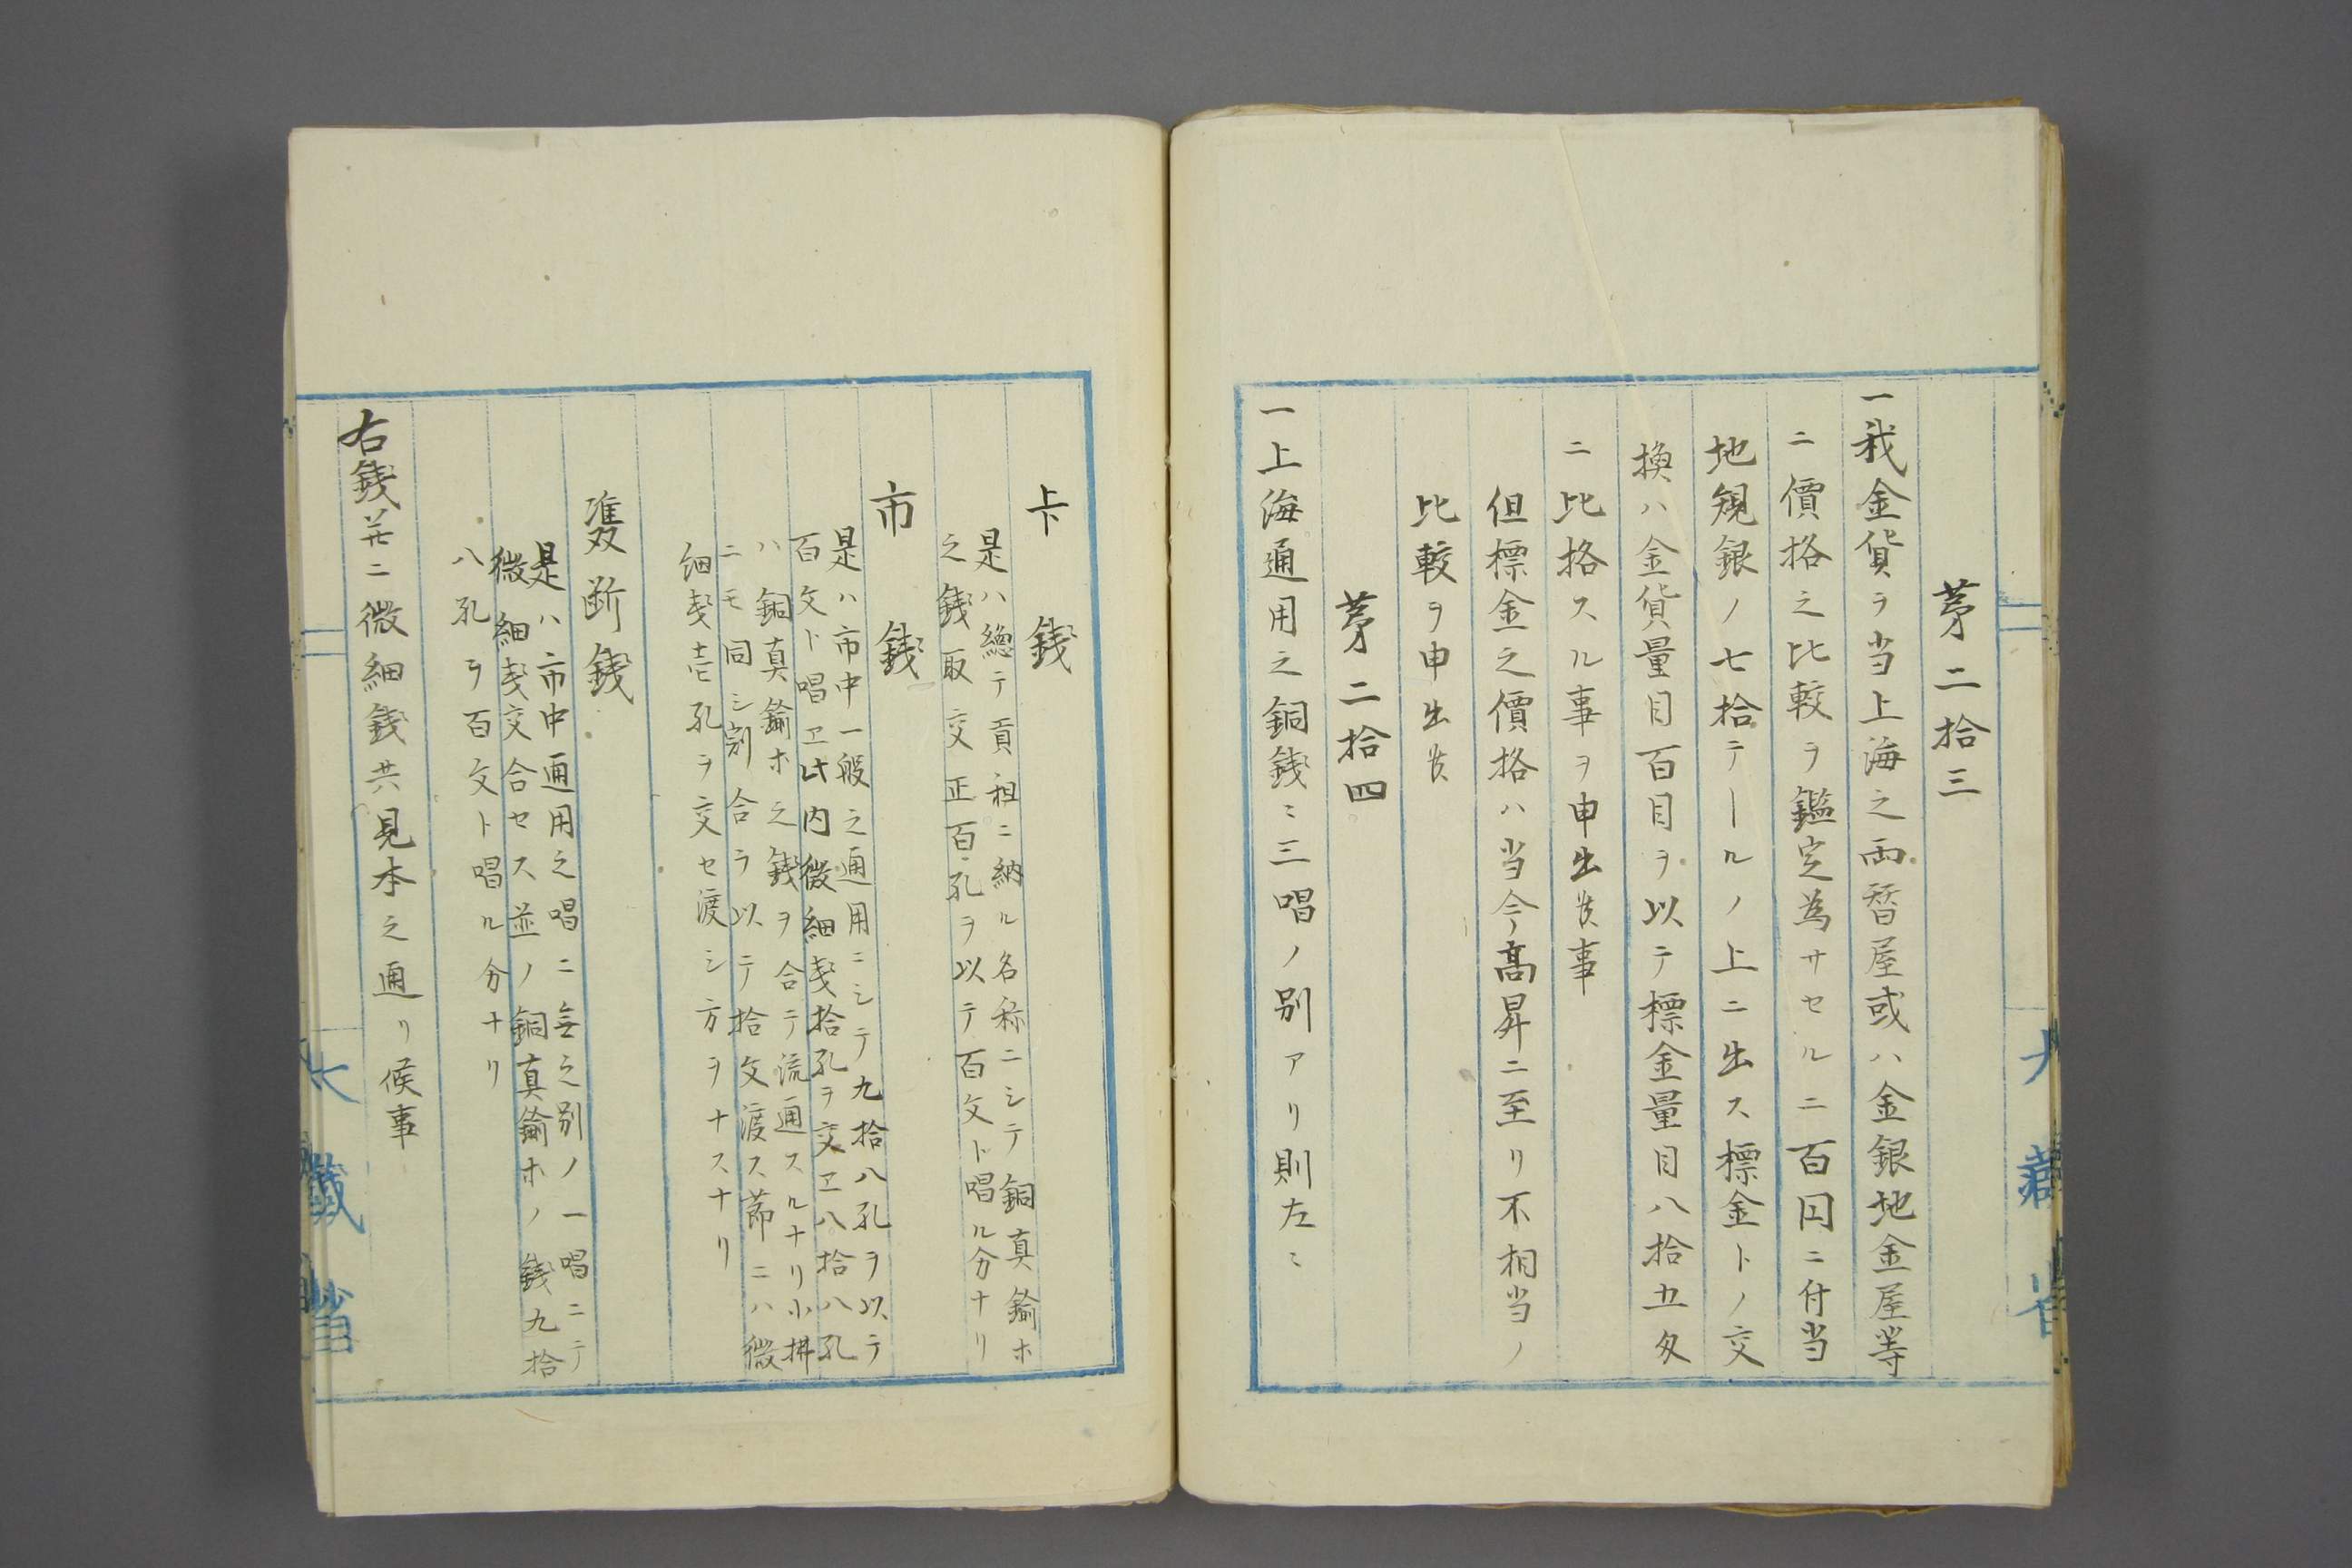 第二拾三
一我金貨ヲ当上海之両替屋或ハ金銀地金屋等
ニ價格之比較ヲ鑑定為サセルニ百円ニ付当
地規銀ノ七拾テールノ上ニ出ス標金トノ交
換ハ金貨量目百目ヲ以テ標金量目八拾五匁
ニ比格スル事ヲ申出候事
但標金之價格ハ当今髙昇ニ至リ不相当ノ
比較ヲ申出候
第二拾四
一上海通用之銅錢ニ三唱ノ別アリ則左ニ
卡錢
是ハ總テ貢租ニ納ル名称ニシテ銅真鍮ホ
之錢取交正百孔ヲ以テ百文ト唱ル分ナリ
市錢
是ハ市中一般之通用ニシテ九拾八孔ヲ以テ
百文ト唱ヱ此内微細戔拾孔ヲ交ヱ八拾八孔
ハ銅真鍮ホ之錢ヲ合テ流通スルナリ小拂
ニモ同シ割合ヲ以テ拾文渡ス節ニハ微
細戔壱孔ヲ交セ渡シ方ヲナスナリ
断錢
是ハ市中通用之唱ニ無之別ノ一唱ニテ
微細戔交合セス並ノ銅真鍮ホノ錢九拾
八孔ヲ百文ト唱ル分ナリ
右錢并ニ微細錢共見本之通リ候事
大藏省